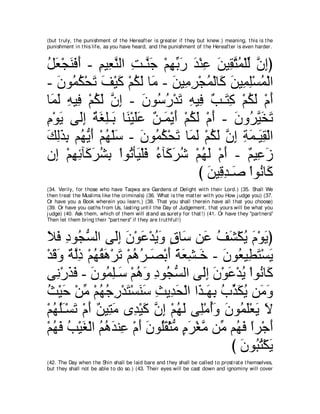 (but truly, the punishment of the Hereafter is greater if they but knew.) meaning, this is the
punishment in this life, as you have heard, and the punishment of the Hereafter is even harder.
(إِنَّ لِلْمُتَّقِينَ عِنْدَ رَبِّهِمْ جَنَّـتِ النَّعِيمِ - أَفَنَجْعَلُ
الْمُسْلِمِينَ كَالْمُجْرِمِينَ - مَا لَكُمْ كَيْفَ تَحْكُمُونَ -
أَمْ لَكُمْ كِتَـبٌ فِيهِ تَدْرُسُونَ - إِنَّ لَكُمْ فِيهِ لَمَا
تَخَيَّرُونَ - أَمْ لَكُمْ أَيْمَـنٌ عَلَيْنَا بَـلِغَةٌ إِلَى يَوْمِ
الْقِيَـمَةِ إِنَّ لَكُمْ لَمَا تَحْكُمُونَ - سَلْهُمْ أَيُّهُم بِذَلِكَ
زَعِيمٌ - أَمْ لَهُمْ شُرَكَآءُ فَلْيَأْتُواْ بِشُرَكَآئِهِمْ إِن
كَانُواْ صَـدِقِينَ )
(34. Verily, for those who have Taqwa are Gardens of Delight with their Lord.) (35. Shall We
then treat the Muslims like the criminals) (36. What is the matter with you How judge you) (37.
Or have you a Book wherein you learn,) (38. That you shall therein have all that you choose)
(39. Or have you oaths from Us, lasting until the Day of Judgement, that yours will be what you
judge) (40. Ask them, which of them will stand as surety for that!) (41. Or have they "partners"
Then let them bring their "partners" if they are truthful!)
(يَوْمَ يُكْشَفُ عَن سَاقٍ وَيُدْعَوْنَ إِلَى السُّجُودِ فَلاَ
يَسْتَطِيعُونَ - خَـشِعَةً أَبْصَـرُهُمْ تَرْهَقُهُمْ ذِلَّةٌ وَقَدْ
كَانُواْ يُدْعَوْنَ إِلَى السُّجُودِ وَهُمْ سَـلِمُونَ - فَذَرْنِى
وَمَن يُكَذِّبُ بِهَـذَا الْحَدِيثِ سَنَسْتَدْرِجُهُمْ مِّنْ حَيْثُ
لاَ يَعْلَمُونَ - وَأُمْلِى لَهُمْ إِنَّ كَيْدِى مَتِينٌ - أَمْ تَسْـَلُهُمْ
أَجْراً فَهُم مِّن مَّغْرَمٍ مُّثْقَلُونَ - أَمْ عِندَهُمُ الْغَيْبُ فَهُمْ
يَكْتُبُونَ )
(42. The Day when the Shin shall be laid bare and they shall be called to prostrate themselves,
but they shall not be able to do so.) (43. Their eyes will be cast down and ignominy will cover